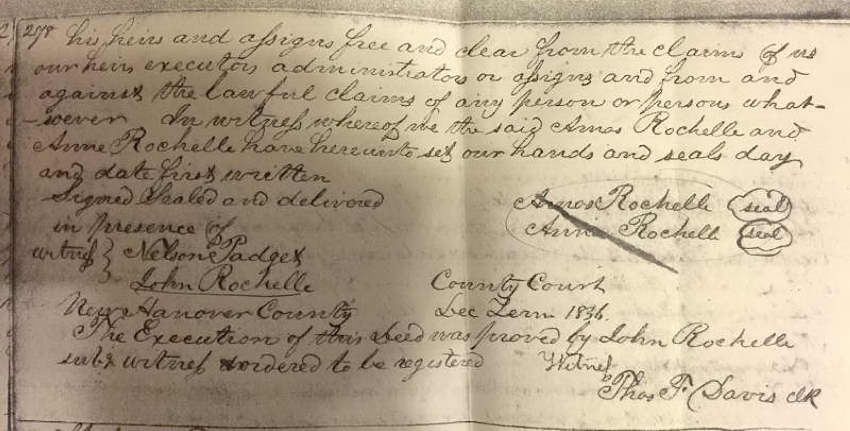 278 his heirs and assigns free and clear from the claims of us
our heirs executors administrators or assigns and from and
against the lawful claims of any person or persons what-
-soever In witness whereof we the said Amos Rochelle and
Anne Rochelle have hereunto set our hands and seals day
and date first written
Signed Sealed and delivered
in presence of
witness } Nelson Padget
John Rochelle
Amos Rochelle (seal)
Anne Rochelle (seal)
New Hanover County
County Court
Dec Term 1836.
The Execution of this Deed was proved by John Rochelle
subs witness & ordered to be registered
Witness
Thos F. Davis clk